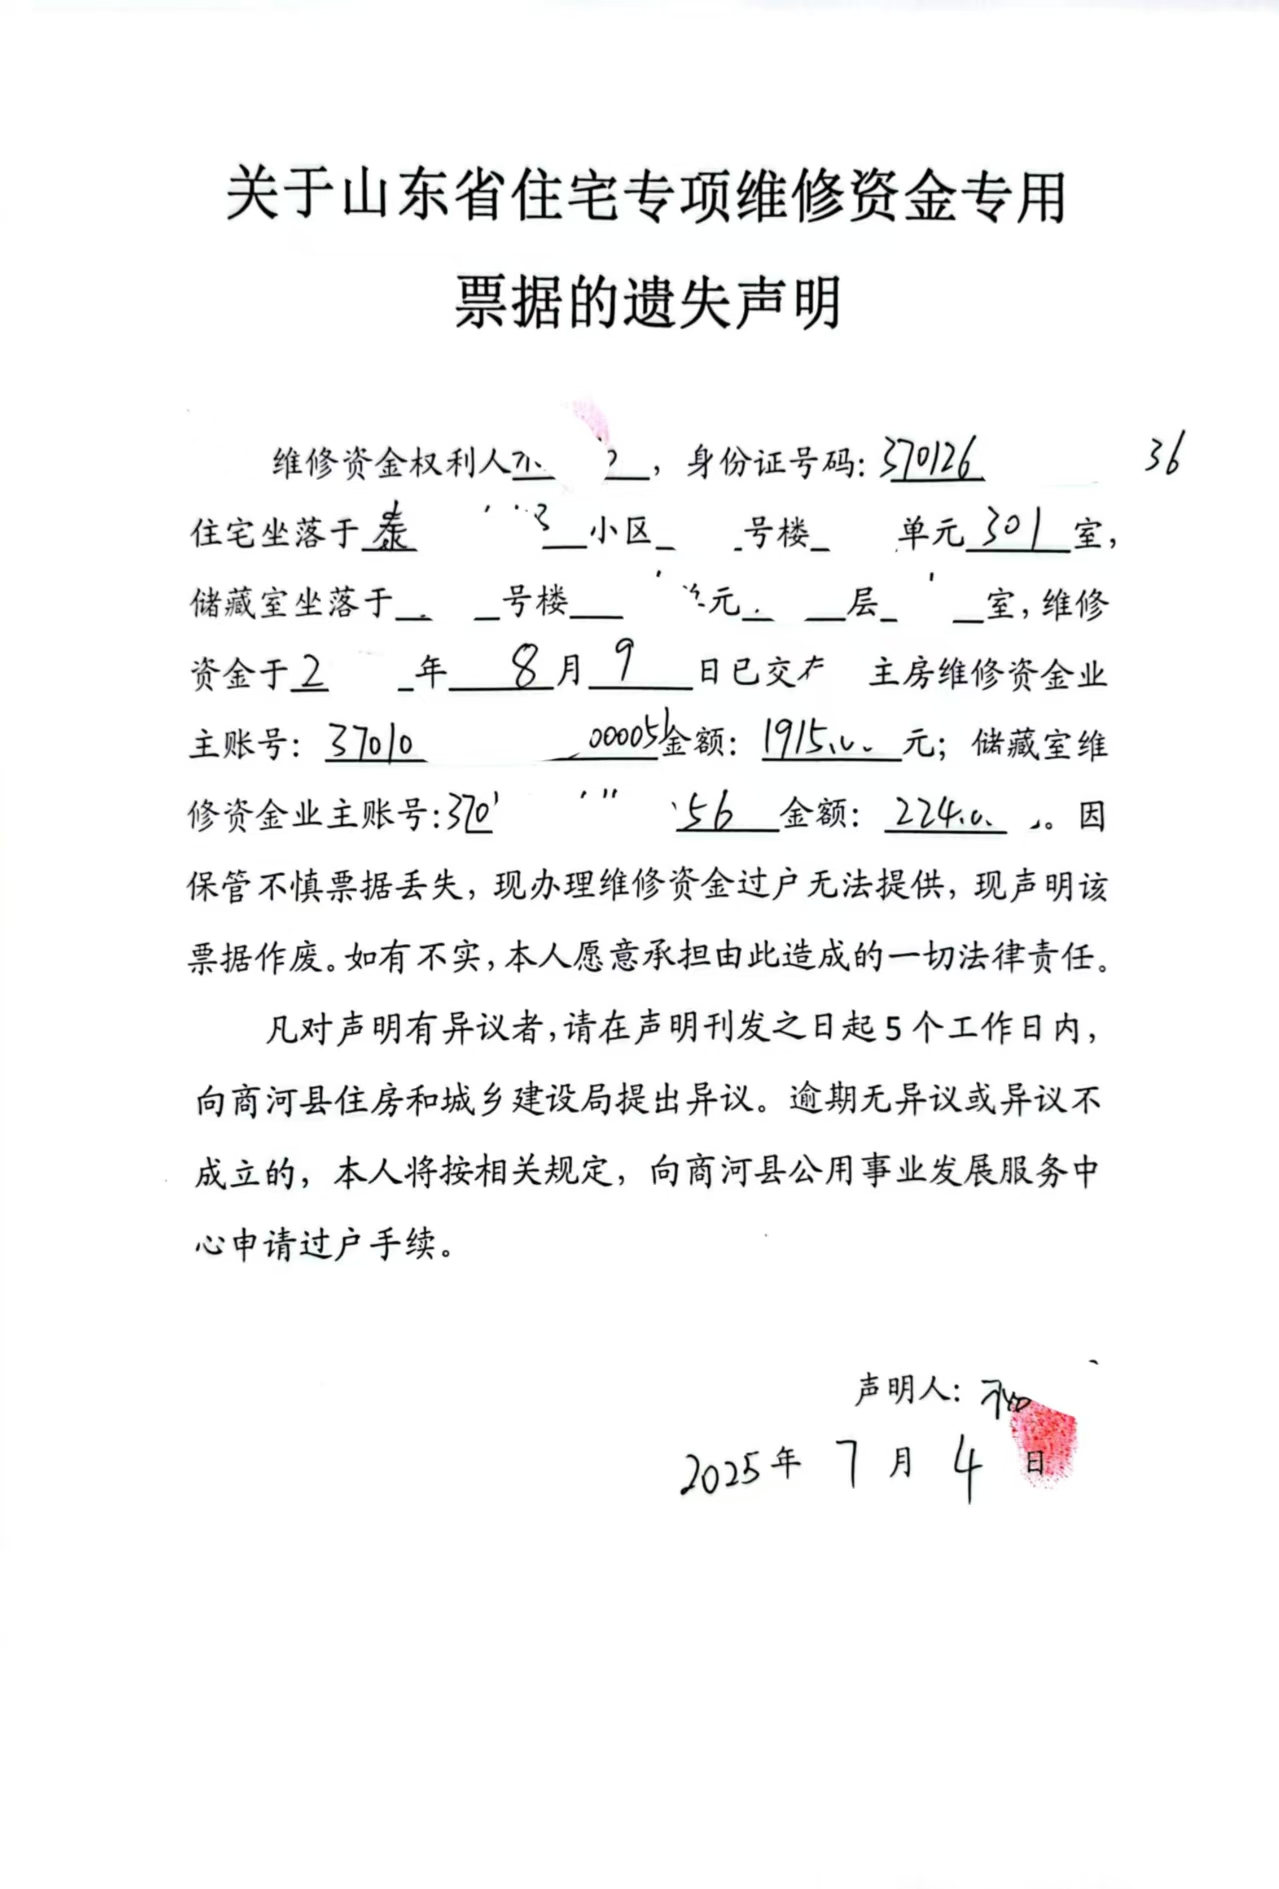 关于山东省住宅专项维修资金专用
票据的遗失声明
维修资金权利人 ，身份证号码：370126 36
住宅坐落于泰 小区 号楼 单元301室，
储藏室坐落于 号楼 单元 层 室，维修
资金于2 年8月9日已交 主房维修资金业
主账号：37010 000051金额：1915.0. 元；储藏室维
修资金业主账号:370 56金额：224.0. 。因
保管不慎票据丢失，现办理维修资金过户无法提供，现声明该
票据作废。如有不实，本人愿意承担由此造成的一切法律责任。
凡对声明有异议者，请在声明刊发之日起5个工作日内，
向商河县住房和城乡建设局提出异议。逾期无异议或异议不
成立的，本人将按相关规定，向商河县公用事业发展服务中
心申请过户手续。
声明人：
2025年7月4日